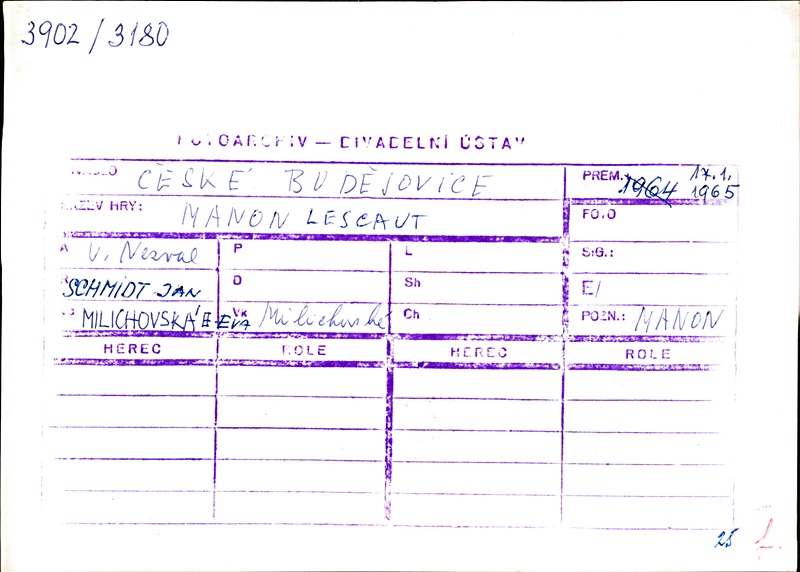 3902 / 3180
FOTOARCHIV — DIVADELNÍ ÚSTAV
DIVADLO ČESKÉ BUDĚJOVICE PREM. 1964 17.1. 1965
NÁZEV HRY: MANON LESCAUT FOTO
A V. Nezval P L SIG.:
R SCHMIDT JAN D Sh E/
S MILICHOVSKÁ E EVA VK Milichovská Ch POZN.: MANON
HEREC ROLE HEREC ROLE
25